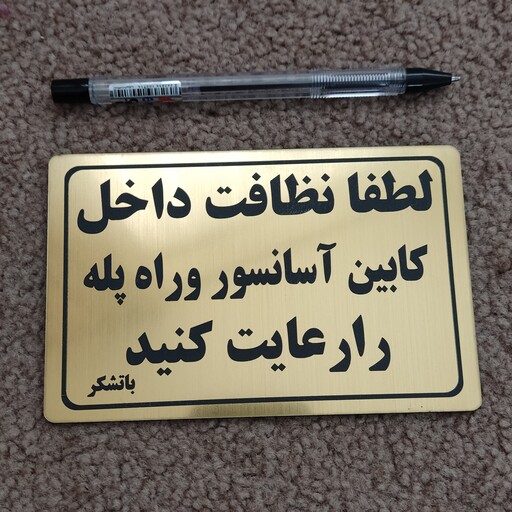 لطفا نظافت داخل
کابین آسانسور وراه پله
را رعایت کنید
باتشکر